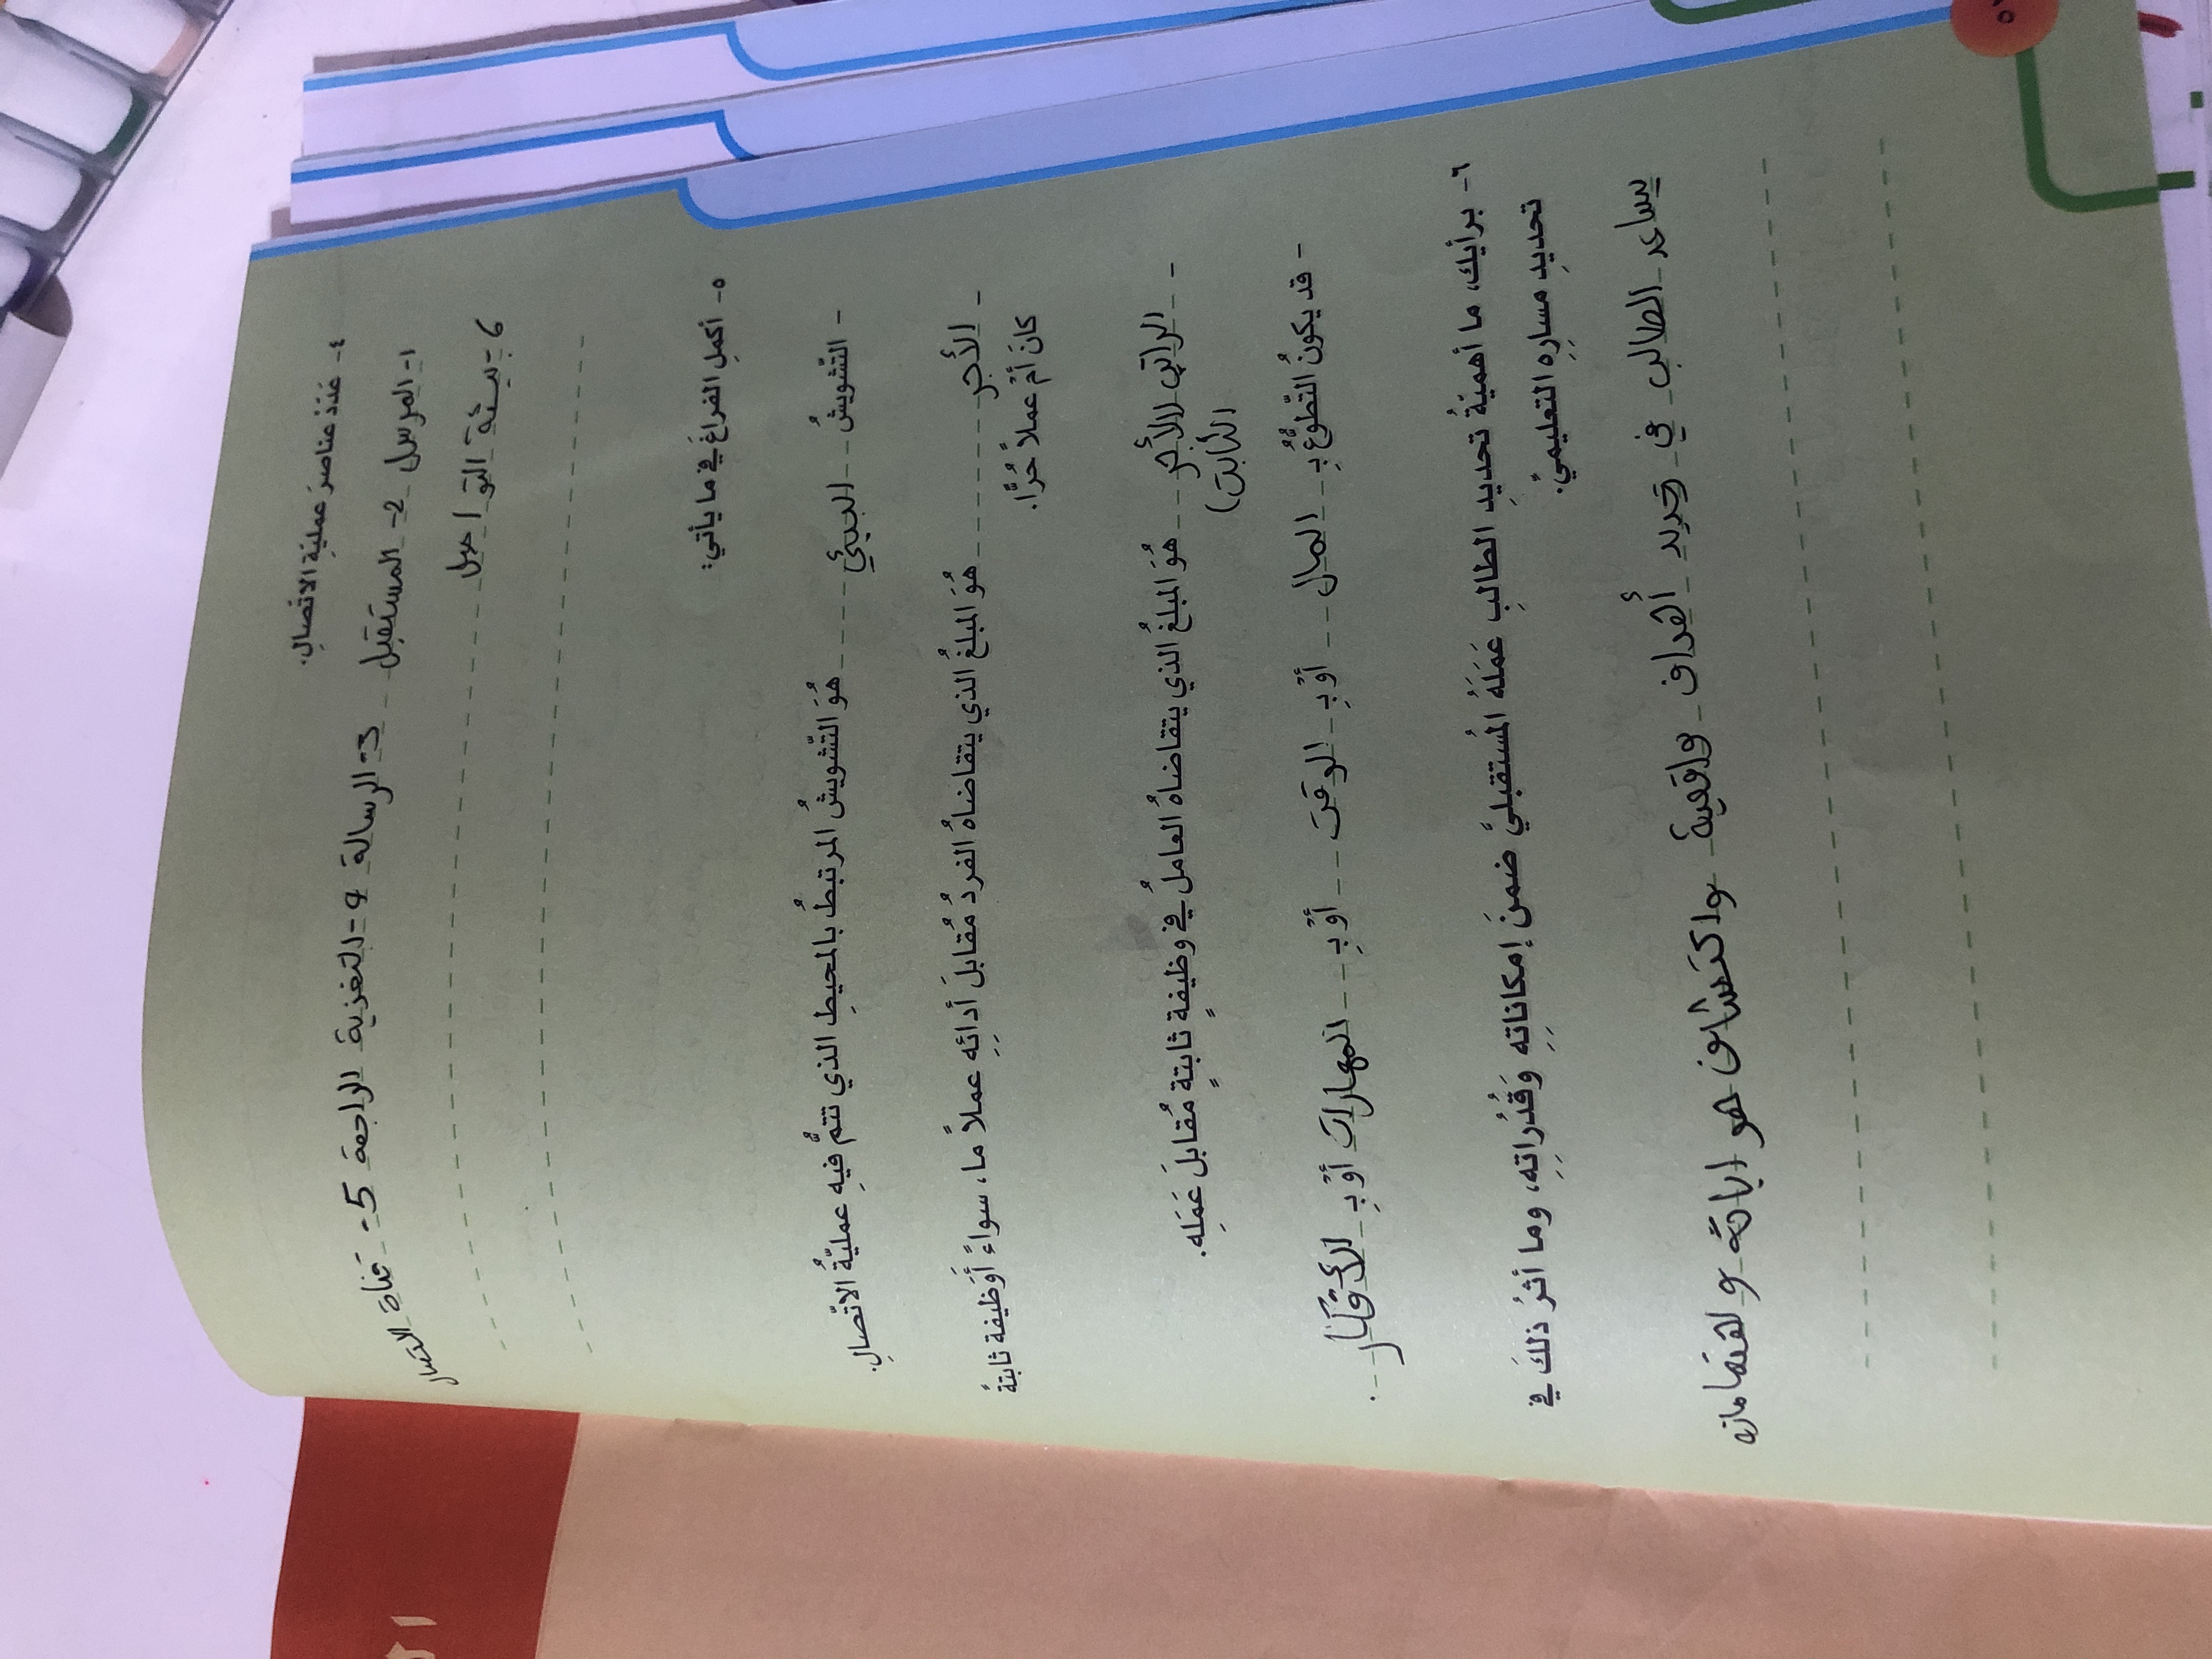 ٤- عَدّدْ عناصرَ عمليّةِ الاتّصالِ.
١- المرسل 2- المستقبل 3- الرسالة 4- التغذية الراجعة 5- قناة الاتصال
6- بيئة التواصل
٥- أكملِ الفراغَ في ما يأتي:
- التّشويشُ البيئي هُوَ التّشويشُ المرتبطُ بالمحيطِ الذي تتمُّ فيهِ عمليّةُ الاتّصالِ.
- الأجر هُوَ المبلغُ الذي يتقاضاهُ الفردُ مُقابلَ أدائِهِ عملاً ما، سواءً أوَظيفة ثابتةً
كانَ أمْ عملاً حُرًّا.
- الراتب (الأجر هُوَ المبلغُ الذي يتقاضاهُ العاملُ في وظيفةٍ ثابتةٍ مُقابلَ عَمَلِه.
الثابت)
- قد يكونُ التّطوّعُ بـِ المال أوْ بـِ الوقت أوْ بـِ المهارات أوْ بـِ الأفكار.
٦- برأيك، ما أهميّةُ تحديدِ الطالبِ عَمَلَهُ المُستقبليَّ ضمنَ إمكاناتِهِ وَقُدُراتِهِ، وما أثرُ ذلكَ في
تحديدِ مسارِهِ التعليميِّ.
يساعد الطالب في تحديد أهداف واقعية واكتشاف هو اياته و اهتماماته